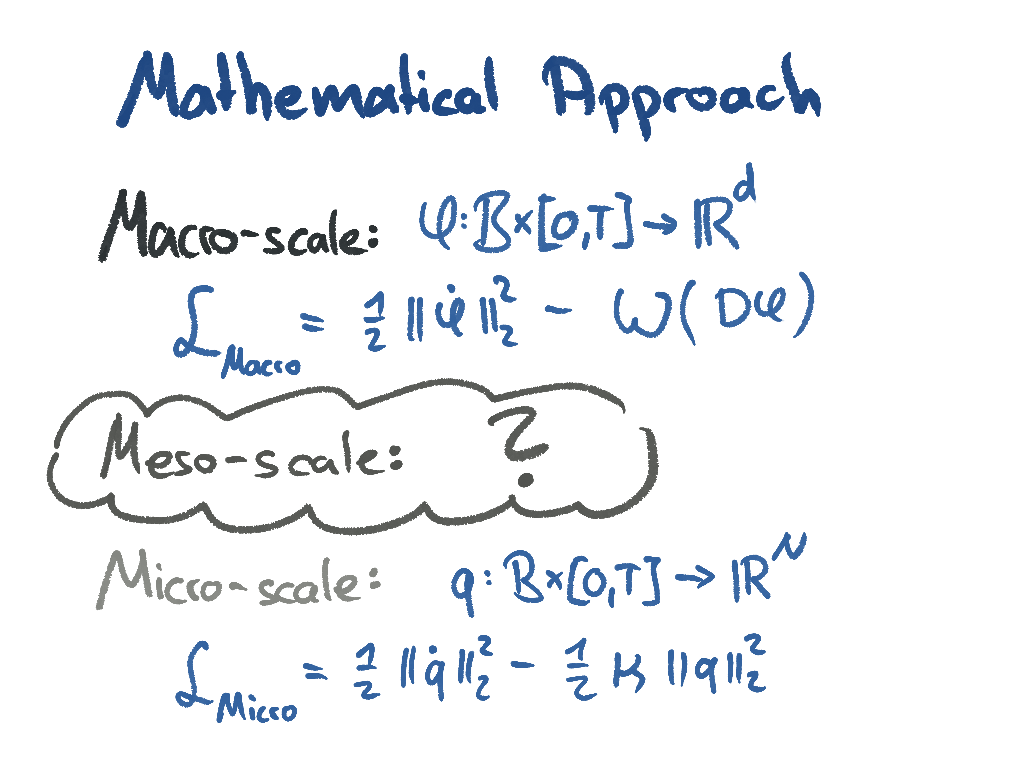 Mathematical Approach
Macro-scale: φ: B×[0,T] → ℝ^d
ℒ_Macro = ½ ‖φ̇‖₂² - W(Dφ)
Meso-scale: ?
Micro-scale: q: B×[0,T] → ℝ^N
ℒ_Micro = ½ ‖q̇‖₂² - ½ κ ‖q‖₂²